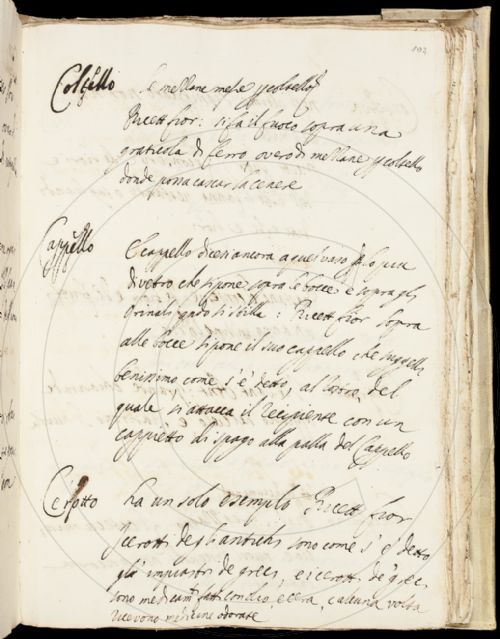 102
Coltello
Ricett fior: si fa il fuoco sopra una
graticola di ferro, overo di mettane p coltello
donde possa cascar la cenere
Cappello
Cappello dicesi ancora a quel vaso
di vetro che si pone sopra le bocce e sopra gli
orinali qndo si stilla: Ricett fior Sopra
alle bocce si pone il suo cappello che suggelli
benissimo come s'è detto, al del
quale si attacca il Recipiente con un
cappietto di spago alla palla del Cappello
Cerotto
ha un solo esempio Ricett fior
I cerotti degli antichi sono come s'è detto
gli impiastri de greci, e i cerotti de greci
sono medicamti fatti con olio, e cera, e alcuna volta
ricevono medicine odorate